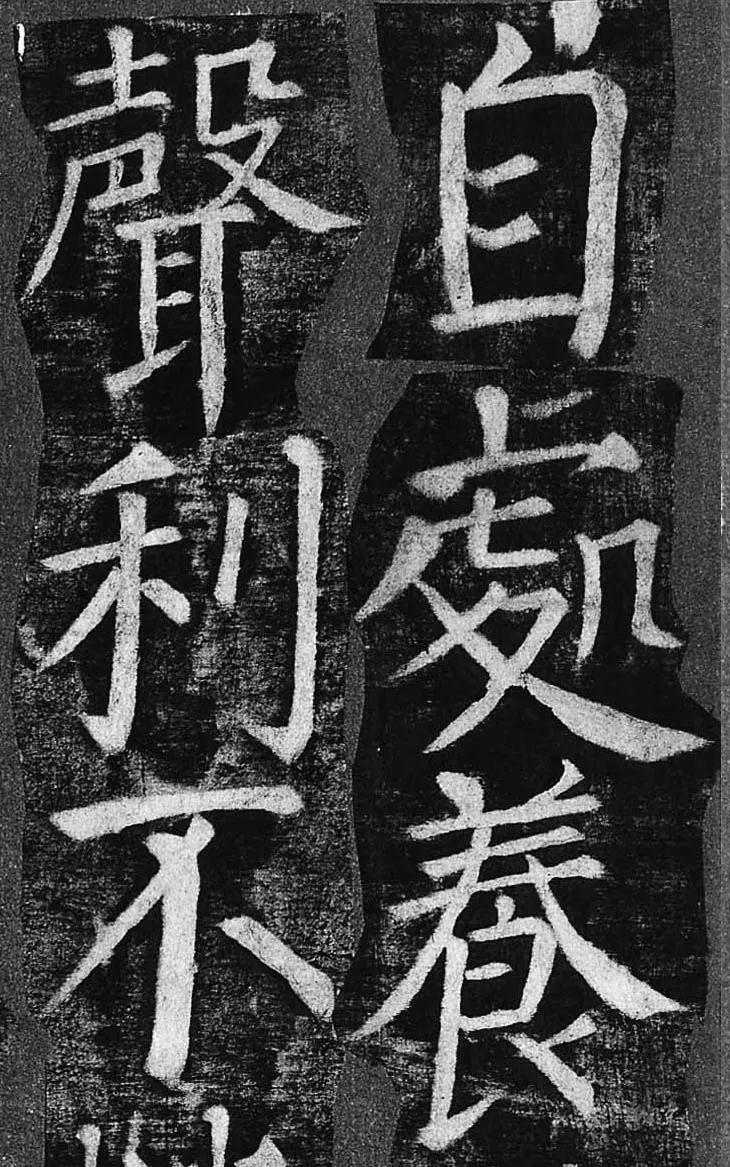 自處養
聲利不